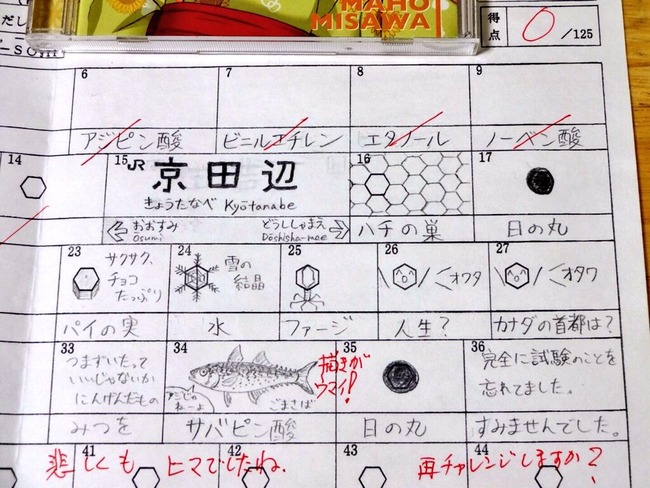 MAHO
MISAWA
得点 0 /125
6 7 8 9
アジピン酸 ビニルエチレン エタノール ノーベン酸
14 15 16 17
JR 京田辺
きょうたなべ Kyōtanabe
おおすみ どうししゃまえ
Osumi Dōshisha-mae
ハチの巣 日の丸
23 24 25 26 27
サクサク、
チョコ
たっぷり
雪の
結晶
オワタ オタワ
パイの実 水 ファージ 人生? カナダの首都は?
33 34 35 36
つまずいたって
いいじゃないか
にんげんだもの
アジじゃ
ねーよ
ごまさば
描きが
ウマイ!
完全に試験のことを
忘れてました。
みつを サバピン酸 日の丸 すみませんでした。
41 42 43 44
悲しくも ヒマでしたね. 再チャレンジしますか?